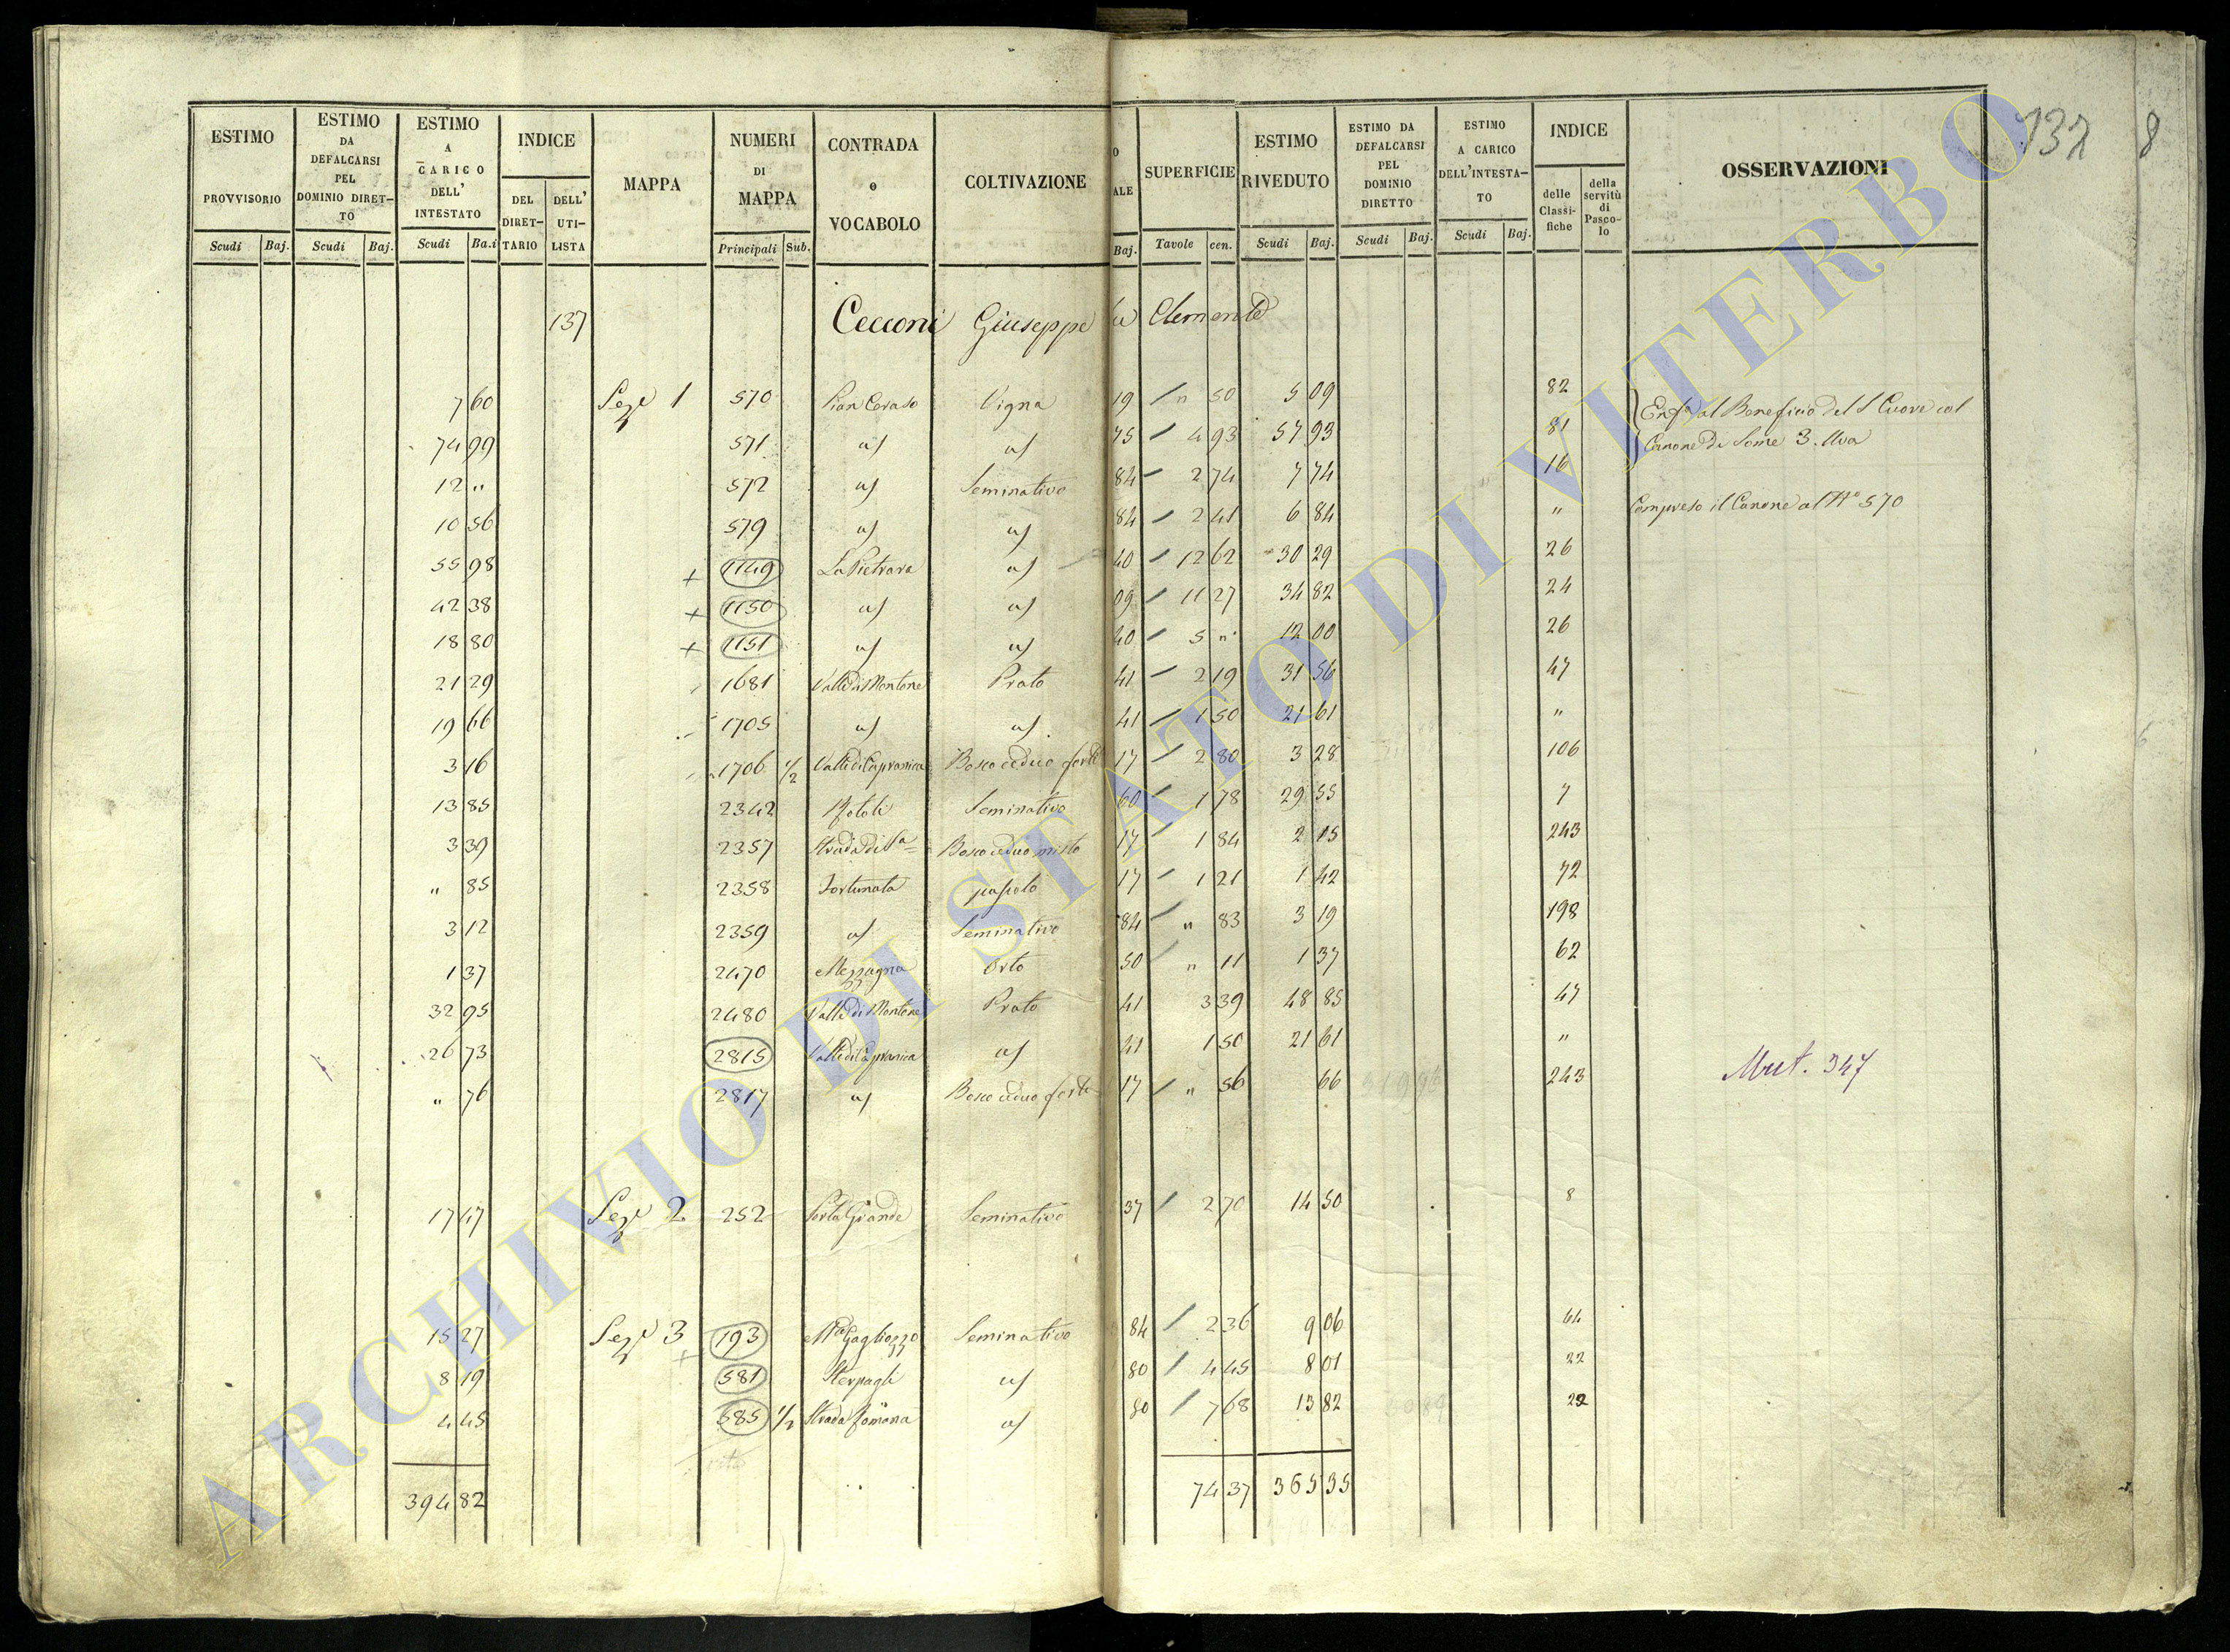 132 8
ESTIMO PROVVISORIO Scudi Baj.
ESTIMO DA DEFALCARSI PEL DOMINIO DIRETTO Scudi Baj.
ESTIMO A CARICO DELL' INTESTATO Scudi Ba.i
INDICE DEL DIRETTARIO DELL' UTILISTA
MAPPA
NUMERI DI MAPPA Principali Sub.
CONTRADA o VOCABOLO
COLTIVAZIONE
O ALE Baj.
SUPERFICIE Tavole cen.
ESTIMO RIVEDUTO Scudi Baj.
ESTIMO DA DEFALCARSI PEL DOMINIO DIRETTO Scudi Baj.
ESTIMO A CARICO DELL'INTESTATO Scudi Baj.
INDICE delle Classifiche della servitù di Pascolo
OSSERVAZIONI
137 Cecconi Giuseppe Clemente
7 60 Sez.e 1 570 Pian Ceraso Vigna 19 " 50 5 09 82 Enf.a al Beneficio del S Cuore col
74 99 571 id id 75 4 93 57 93 81 Canone di Some 3. Uva
12 " 572 id Seminativo 84 2 74 7 74 16
10 56 579 id id 84 2 41 6 84 " Compreso il Canone al N° 570
55 98 + 1149 La Pietrara id 40 12 62 30 29 26
42 38 + 1150 id id 09 11 27 34 82 24
18 80 + 1151 id id 40 5 " 12 00 26
21 29 1681 Valle di Montone Prato 41 2 19 31 56 47
19 66 1705 id id 41 1 50 21 61 "
3 16 1706 1/2 Valle di Capranica Bosco ceduo forte 17 2 80 3 28 106
13 85 2342 Seminativo 60 1 78 29 55 7
3 39 2357 Strada di S.a Bosco ceduo misto 17 1 84 2 15 243
" 85 2358 Fortunata pascolo 17 1 21 1 42 72
3 12 2359 id Seminativo 84 " 83 3 19 198
1 37 2470 Mezzagna Orto 50 " 11 1 37 62
32 95 2480 Valle di Montone Prato 41 3 39 48 85 47
26 73 2815 Valle di Capranica id 41 1 50 21 61 "
" 76 2817 id Bosco ceduo forte 17 " 56 66 319 96 243 Mut. 347
17 47 Sez.e 2 252 Porta Grande Seminativo 37 2 70 14 50 8
15 27 Sez.e 3 193 Seminativo 84 2 36 9 06 64
8 19 + 581 Sterpaglie id 80 4 45 8 01 22
4 45 585 1/2 Strada Romana id 80 7 68 13 82 22
394 82 74 37 365 35
ARCHIVIO DI STATO DI VITERBO